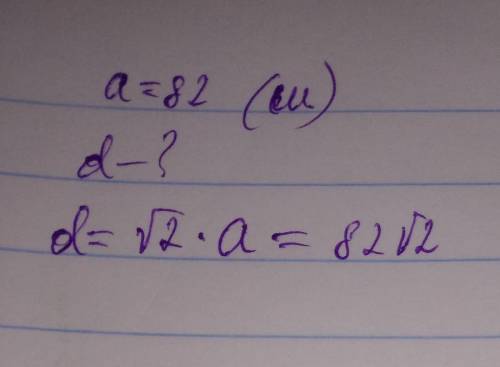 a = 82 (см)
d - ?
d = √2 · a = 82√2